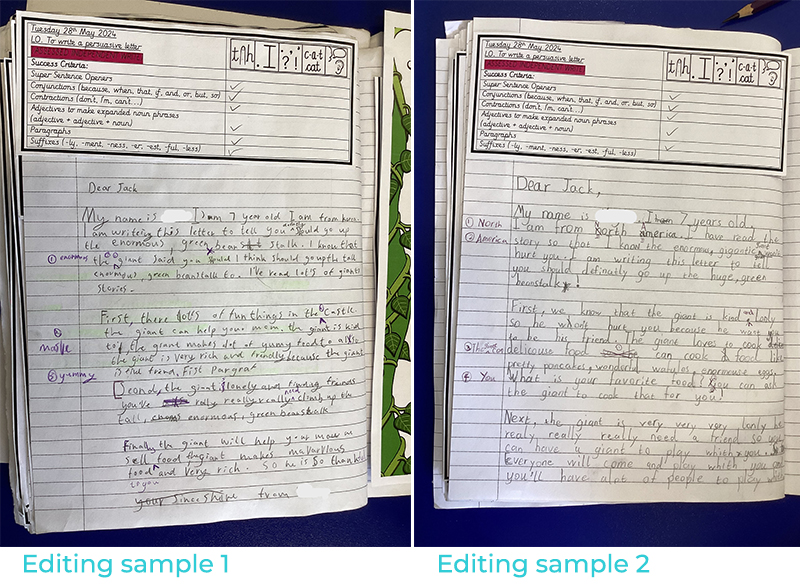 Tuesday 28th May 2024
LO. To write a persuasive letter
Success Criteria:
Super Sentence Openers
Conjunctions (because, when, that, if, and, or, but, so)
Contractions (don't, I'm, can't...)
Adjectives to make expanded noun phrases
(adjective + adjective + noun)
Paragraphs
Suffixes (-ly, -ment, -ness, -er, -est, -ful, -less)
Dear Jack
My name is I am 7 year old I am from
am writeing this letter to tell you should go up
the enormous, green bean stalk. I know that
① enormous the giant said you should think should goup the
enormous, green beanstalk to. I've read lot's of giant
stories.
First, there lot's of fun things in the castle.
the giant can help your mom. the giant is kind
to the giant makes alot of yummy food to
the giant is very rich and friendly because the giant
is true friend, First Pargrat
③ yummy
the giant lonely and friends
you've really really climb up the
tall, enormous, green beanstalk
Finally the giant will help your mum
sell food the giant makes
food and very rich. So he is so
your from
Editing sample 1
Tuesday 28th May 2024
LO. To write a persuasive letter
Success Criteria:
Super Sentence Openers
Conjunctions (because, when, that, if, and, or, but, so)
Contractions (don't, I'm, can't...)
Adjectives to make expanded noun phrases
(adjective + adjective + noun)
Paragraphs
Suffixes (-ly, -ment, -ness, -er, -est, -ful, -less)
Dear Jack,
My name is I 7 years old,
① North I am from North America. I have read the
② American story so that I know the enormous, gigantic
hurt you. I am writing this letter to tell
you should definatly go up the huge, green
beanstalk!
First, we know that the giant is kind and lonly
so he won't hurt you because he want you
to be his friend. The giant loves to cook
delicouse food can cook food like
pretty pancakes, wonderful wafules, enormouse eggs,
④ You What is your favorite food? You can ask
the giant to cook that for you!
Next, the giant is very very very lonly he
realy really really need a friend so you
can have a giant to play which you.
Everyone will come and play which you and
you'll have a of people to play
Editing sample 2